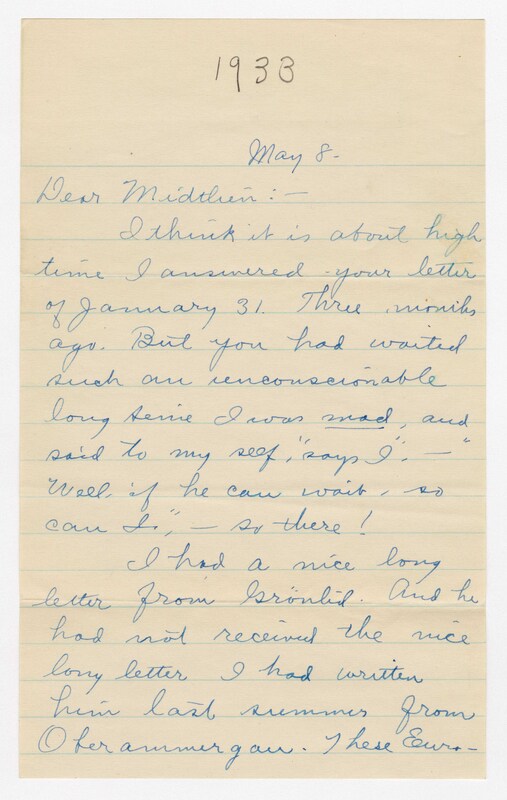 1933
May 8-
Dear Midthien:-
I think it is about high
time I answered your letter
of January 31. Three months
ago. But you had waited
such an unconscionable
long time I was mad, and
said to my self, "says I", - "
Well. if he can wait, so
can I", - so there!
I had a nice long
letter from Grönlid. And he
had not received the nice
long letter I had written
him last summer from
Oberammergau. These Euro-